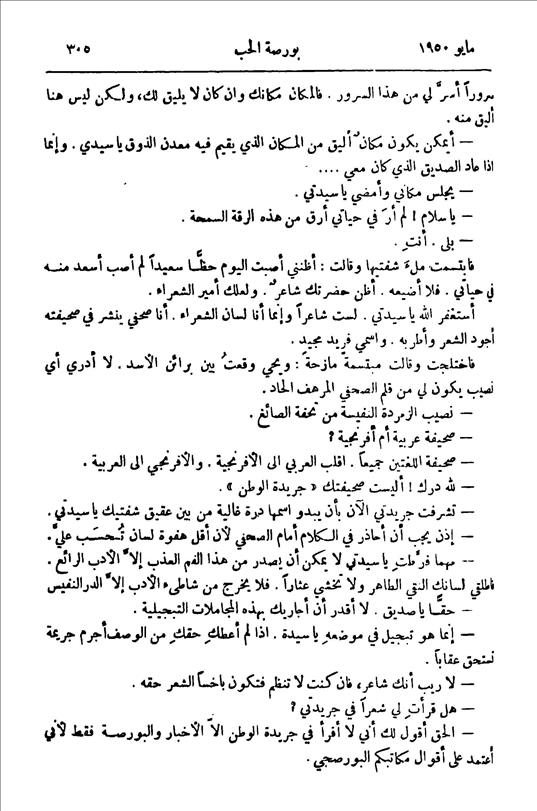 مايو ١٩٥٠ بورصة الحب ٣٠٥
سروراً أسرَّ لي من هذا السرور . فالمكان مكانك وان كان لا يليق لك، ولكن ليس هنا
أليق منه .
— أيمكن يكون مكانٌ أليق من المكان الذي يقيم فيه معدن الذوق ياسيدي . وإنما
اذا عاد الصديق الذي كان معي ....
— يجلس مكاني وأمضي ياسيدتي .
— ياسلام ! لم أرَ في حياتي أرق من هذه الرقة السمحة .
— بلى . أنتِ .
فابتسمت ملءَ شفتيها وقالت : أظنني أصبت اليوم حظّاً سعيداً لم أصب أسعد منه
في حياتي . فلا أضيعه . أظن حضرتك شاعرٌ . ولعلك أمير الشعراء .
أستغفر الله ياسيدتي . لست شاعراً وإنما أنا لسان الشعراء . أنا صحفي ينشر في صحيفته
أجود الشعر وأطربه . واسمي فريد مجيد .
فاختلجت وقالت مبتسمةً مازحةً : ويحي وقعتُ بين براثن الأسد . لا أدري أي
نصيب يكون لي من قلم الصحفي المرهف الحاد .
— نصيب الزمردة النفيسة من تحفة الصائغ .
— صحيفة عربية أم أفرنجية ?
— صحيفة اللغتين جميعاً . اقلب العربي الى الأفرنجية . والأفرنجي الى العربية .
— لله درك ! أليست صحيفتك « جريدة الوطن » .
— تشرفت جريدتي الآن بأن يبدو اسمها درة غالية من بين عقيق شفتيك ياسيدتي .
— إذن يجب أن أحاذر في الكلام أمام الصحفي لأن أقل هفوة لسان تُحسَب عليَّ .
— مهما فرَّطتِ ياسيدتي لا يمكن أن يصدر من هذا الفم العذب إلاَّ الأدب الرائع .
فاطلقي لسانك النقي الطاهر ولا تخشي عثاراً . فلا يخرج من شاطىء الأدب إلاَّ الدر النفيس
— حقّاً ياصديق . لا أقدر أن أجاريك بهذه المجاملات التبجيلية .
— إنما هو تبجيل في موضعه ياسيدة . اذا لم أعطكِ حقكِ من الوصف أجرم جريمة
تستحق عقاباً .
— لا ريب أنك شاعر، فان كنت لا تنظم فتكون باخساً الشعر حقه .
— هل قرأتِ لي شعراً في جريدتي ?
— الحق أقول لك أني لا أقرأ في جريدة الوطن الاَّ الأخبار والبورصة فقط لأني
أعتمد على أقوال مكاتبكم البورصجي .